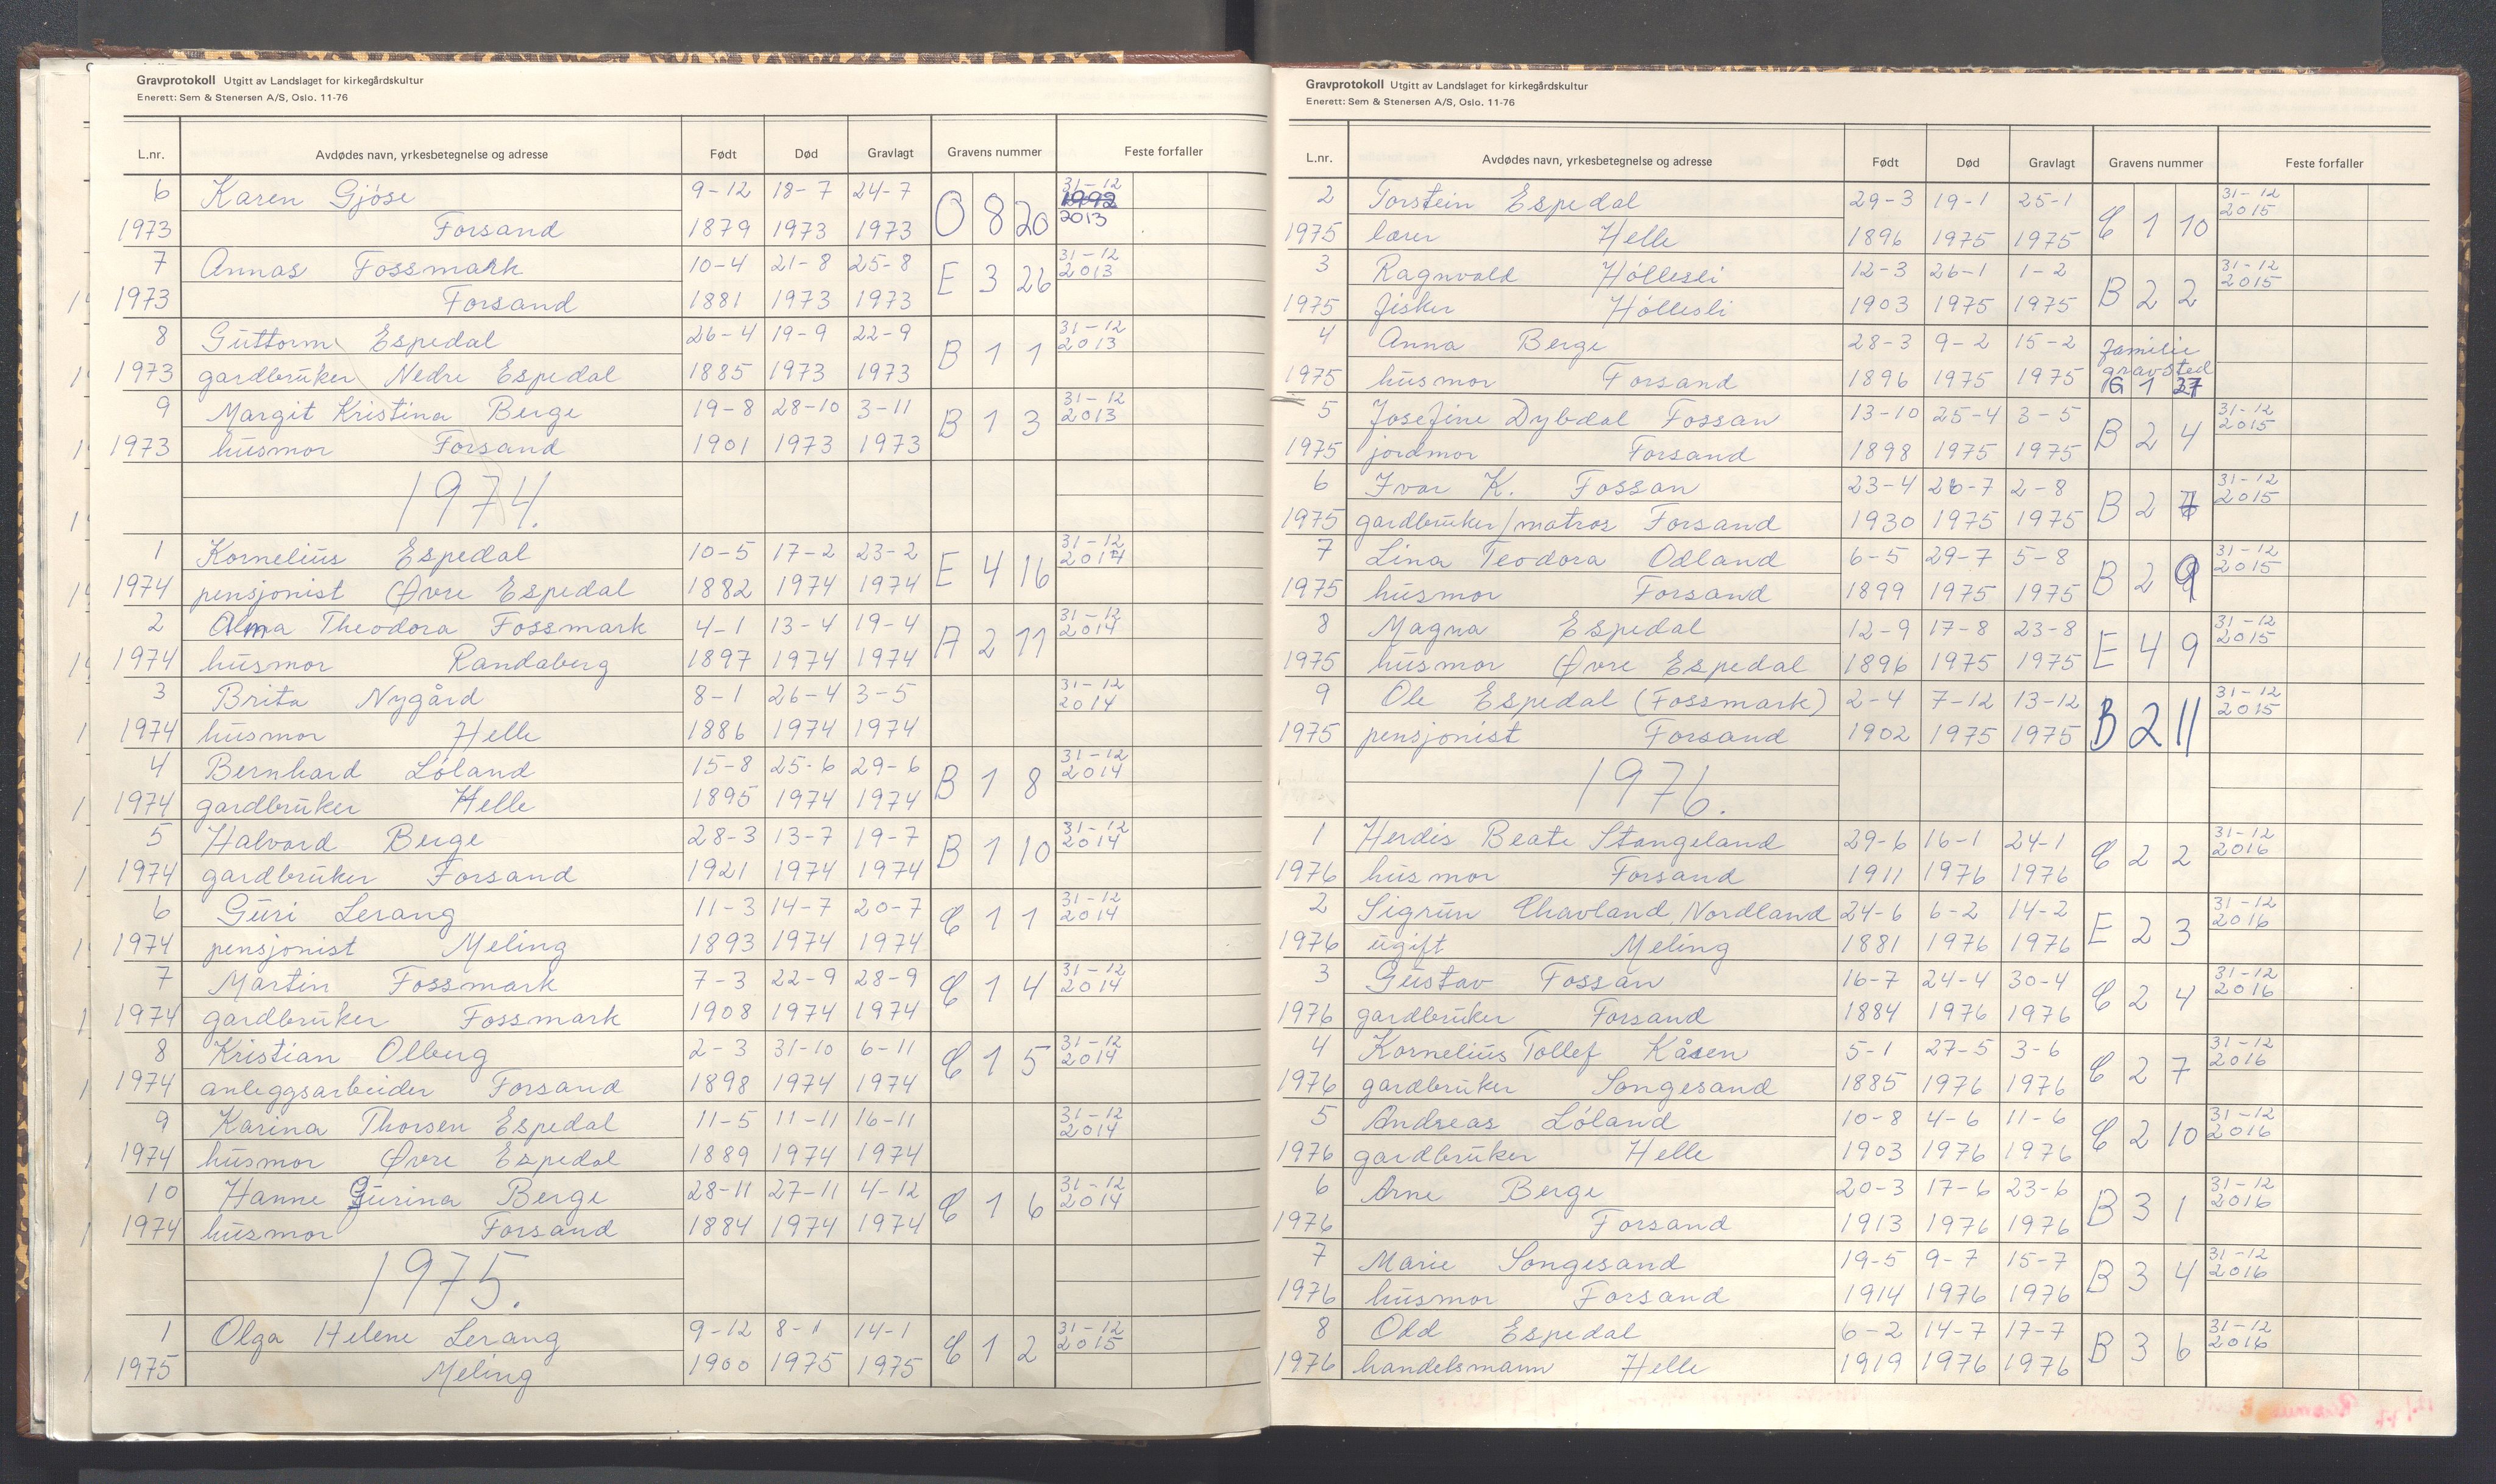 Gravprotokoll Utgitt av Landslaget for kirkegårdskultur
Enerett: Sem & Stenersen A/S, Oslo. 11-76
L.nr. Avdødes navn, yrkesbetegnelse og adresse Født Død Gravlagt Gravens nummer Feste forfaller
6 Karen Gjöse 9-12 18-7 24-7 O 8 20 31-12 1992
1973 Forsand 1879 1973 1973 2013
7 Annas Fossmark 10-4 21-8 25-8 E 3 26 31-12
1973 Forsand 1881 1973 1973 2013
8 Guttorm Espedal 26-4 19-9 22-9 B 1 1 31-12
1973 gardbruker Nedre Espedal 1885 1973 1973 2013
9 Margit Kristina Berge 19-8 28-10 3-11 B 1 3 31-12
1973 husmor Forsand 1901 1973 1973 2013
1974.
1 Kornelius Espedal 10-5 17-2 23-2 E 4 16 31-12
1974 pensjonist Øvre Espedal 1882 1974 1974 2014
2 Alma Theodora Fossmark 4-1 13-4 19-4 A 2 11 31-12
1974 husmor Randaberg 1897 1974 1974 2014
3 Brita Nygård 8-1 26-4 3-5 31-12
1974 husmor Helle 1886 1974 1974 2014
4 Bernhard Löland 15-8 25-6 29-6 B 1 8 31-12
1974 gardbruker Helle 1895 1974 1974 2014
5 Halvard Berge 28-3 13-7 19-7 B 1 10 31-12
1974 gardbruker Forsand 1921 1974 1974 2014
6 Guri Lerang 11-3 14-7 20-7 C 1 1 31-12
1974 pensjonist Meling 1893 1974 1974 2014
7 Martin Fossmark 7-3 22-9 28-9 C 1 4 31-12
1974 gardbruker Fossmark 1908 1974 1974 2014
8 Kristian Olberg 2-3 31-10 6-11 C 1 5 31-12
1974 anleggsarbeider Forsand 1898 1974 1974 2014
9 Karina Thorsen Espedal 11-5 11-11 16-11 31-12
1974 husmor Øvre Espedal 1889 1974 1974 2014
10 Hanne Gurina Berge 28-11 27-11 4-12 C 1 6 31-12
1974 husmor Forsand 1884 1974 1974 2014
1975.
1 Olga Helene Lerang 9-12 8-1 14-1 C 1 2 31-12
1975 Meling 1900 1975 1975 2015
Gravprotokoll Utgitt av Landslaget for kirkegårdskultur
Enerett: Sem & Stenersen A/S, Oslo. 11-76
L.nr. Avdødes navn, yrkesbetegnelse og adresse Født Død Gravlagt Gravens nummer Feste forfaller
2 Torstein Espedal 29-3 19-1 25-1 C 1 10 31-12
1975 lærer Helle 1896 1975 1975 2015
3 Ragnvald Höllesli 12-3 26-1 1-2 B 2 2 31-12
1975 fisker Höllesli 1903 1975 1975 2015
4 Anna Berge 28-3 9-2 15-2 familie gravsted
1975 husmor Forsand 1896 1975 1975 G 1 37
5 Josefine Dybdal Fossan 13-10 25-4 3-5 B 2 4 31-12
1975 jordmor Forsand 1898 1975 1975 2015
6 Ivar K. Fossan 23-4 26-7 2-8 B 2 31-12
1975 gardbruker/matros Forsand 1930 1975 1975 2015
7 Lina Teodora Odland 6-5 29-7 5-8 B 2 9 31-12
1975 husmor Forsand 1899 1975 1975 2015
8 Magna Espedal 12-9 17-8 23-8 E 4 9 31-12
1975 husmor Øvre Espedal 1896 1975 1975 2015
9 Ole Espedal (Fossmark) 2-4 7-12 13-12 B 2 11 31-12
1975 pensjonist Forsand 1902 1975 1975 2015
1976.
1 Herdis Beate Stangeland 29-6 16-1 24-1 C 2 2 31-12
1976 husmor Forsand 1911 1976 1976 2016
2 Sigrun Nordland 24-6 6-2 14-2 E 2 3 31-12
1976 ugift Meling 1881 1976 1976 2016
3 Gustav Fossan 16-7 24-4 30-4 C 2 4 31-12
1976 gardbruker Forsand 1884 1976 1976 2016
4 Kornelius Tollef Kåsen 5-1 27-5 3-6 C 2 7 31-12
1976 gardbruker Songesand 1885 1976 1976 2016
5 Andreas Löland 10-8 4-6 11-6 C 2 10 31-12
1976 gardbruker Helle 1903 1976 1976 2016
6 Arne Berge 20-3 17-6 23-6 B 3 1 31-12
1976 Forsand 1913 1976 1976 2016
7 Marie Songesand 19-5 9-7 15-7 B 3 4 31-12
1976 husmor Forsand 1914 1976 1976 2016
8 Odd Espedal 6-2 14-7 17-7 B 3 6 31-12
1976 handelsmann Helle 1919 1976 1976 2016